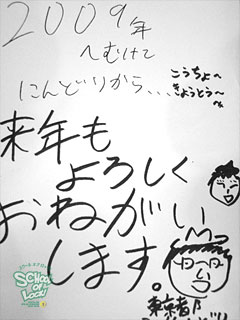 2009年
へむけて
にんどりから、、、
こうちょ〜
きょうとう〜
来年も
よろしく
おねがい
します。
SCHOOL
OF
LOCK!